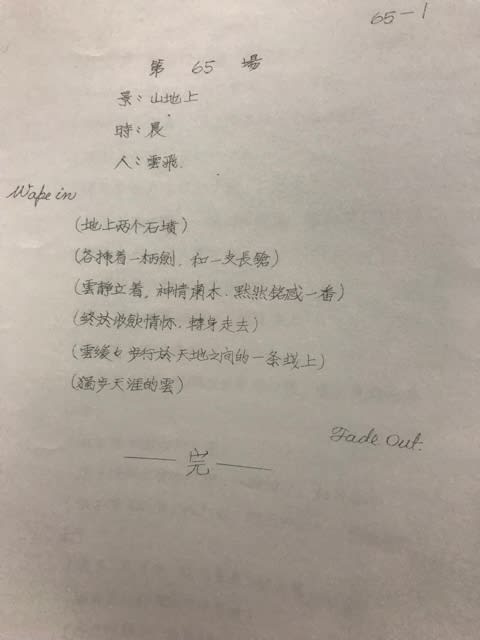 65-1
第 65 場
景：山地上
時：晨
人：雲飛.
Wape in
(地上两个石墳)
(各揷着一柄劍．和一支長鎗)
(雲静立着。神情肅木．黙然銘感一番)
(終於收歛情怀．轉身走去)
(雲缓々步行於天地之间的一条线上)
(獨步天涯的雲)
Fade Out.
—— 完 ——